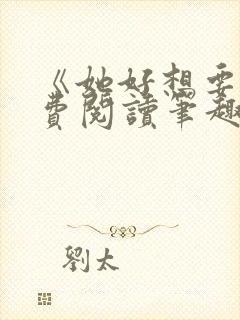 《她好想要
費閱讀筆趣
劉太